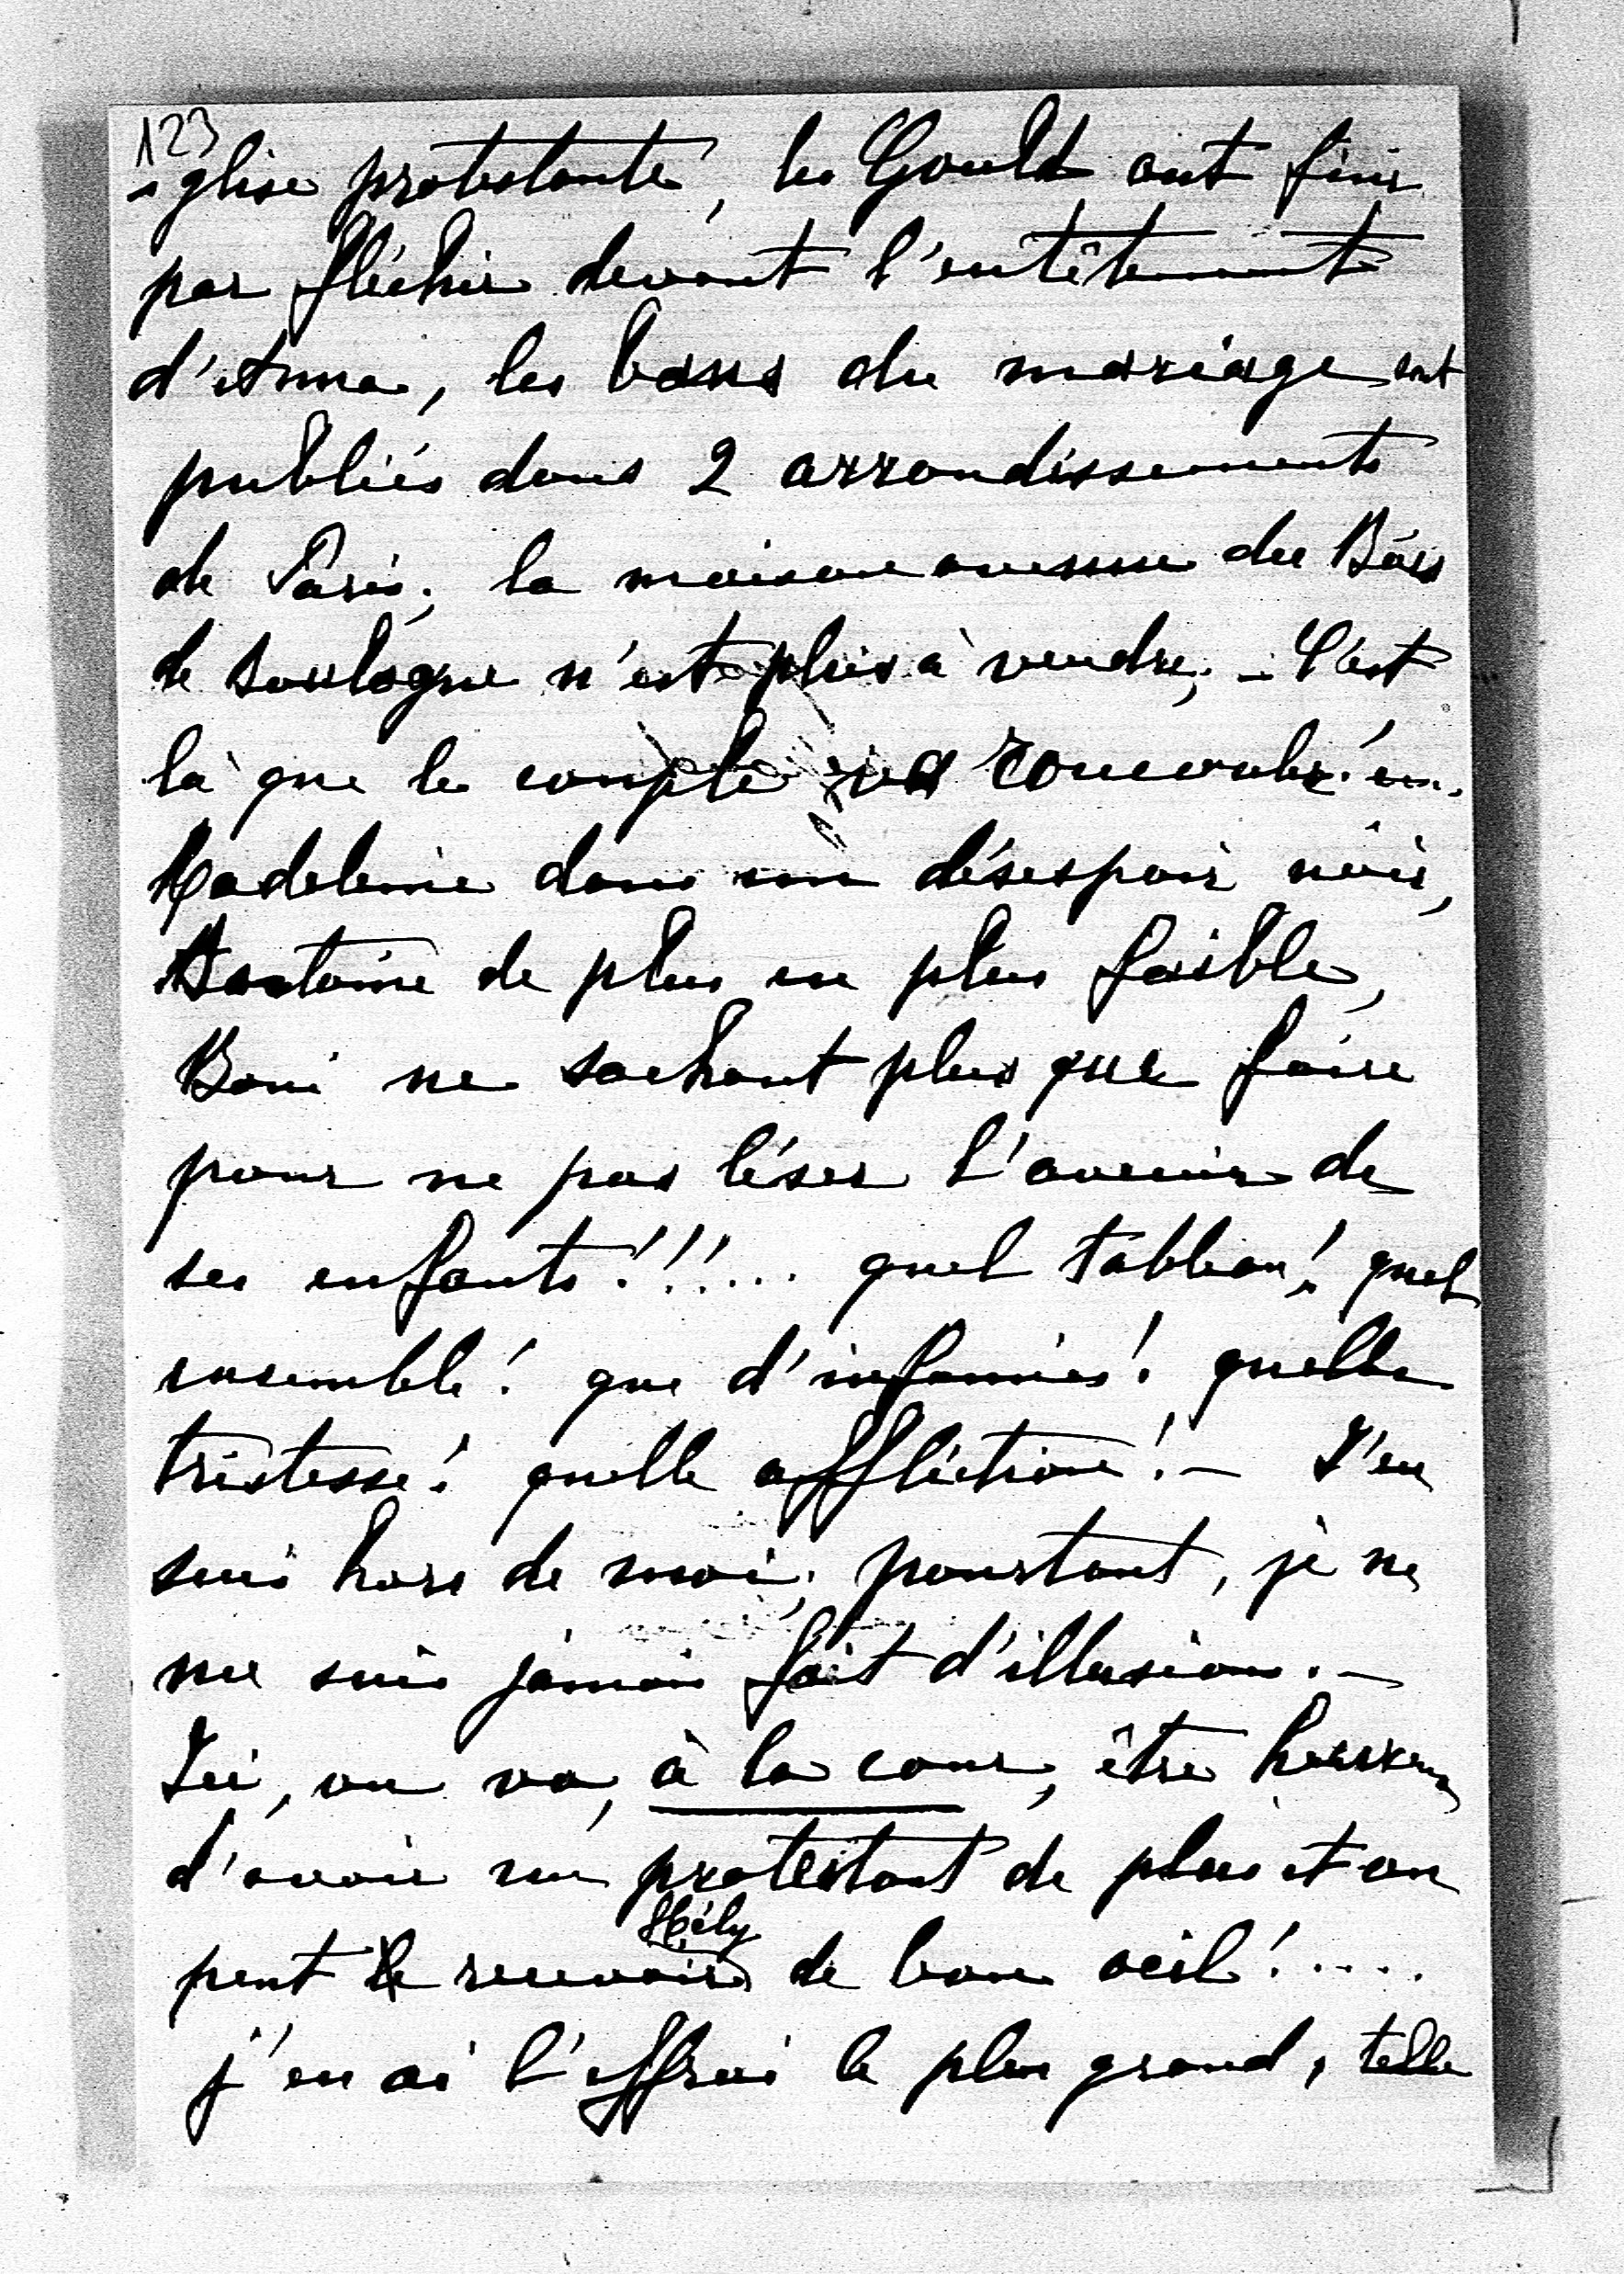 123
église protestante, les Gould ont fini
par fléchir devant l'entêtement
d'Anna, les bans du mariage sont
publiés dans 2 arrondissements
de Paris; la maison avenue du Bois
de Boulogne n'est plus à vendre; - C'est
là que le couple va roucouler!
Madeleine dans un désespoir noir,
Antoine de plus en plus faible,
Boni ne sachant plus que faire
pour ne pas léser l'avenir de
ses enfants!!!... quel tableau! quel
ensemble! que d'infamies! quelle
tristesse! quelle affliction! - J'en
suis hors de moi; pourtant, je ne
me suis jamais fait d'illusion. -
Ici, on va, à la cour, être heureux
d'avoir un protestant de plus et on
Hély
peut recevoir de bon oeil!.....
j'en ai l'effroi le plus grand, telle